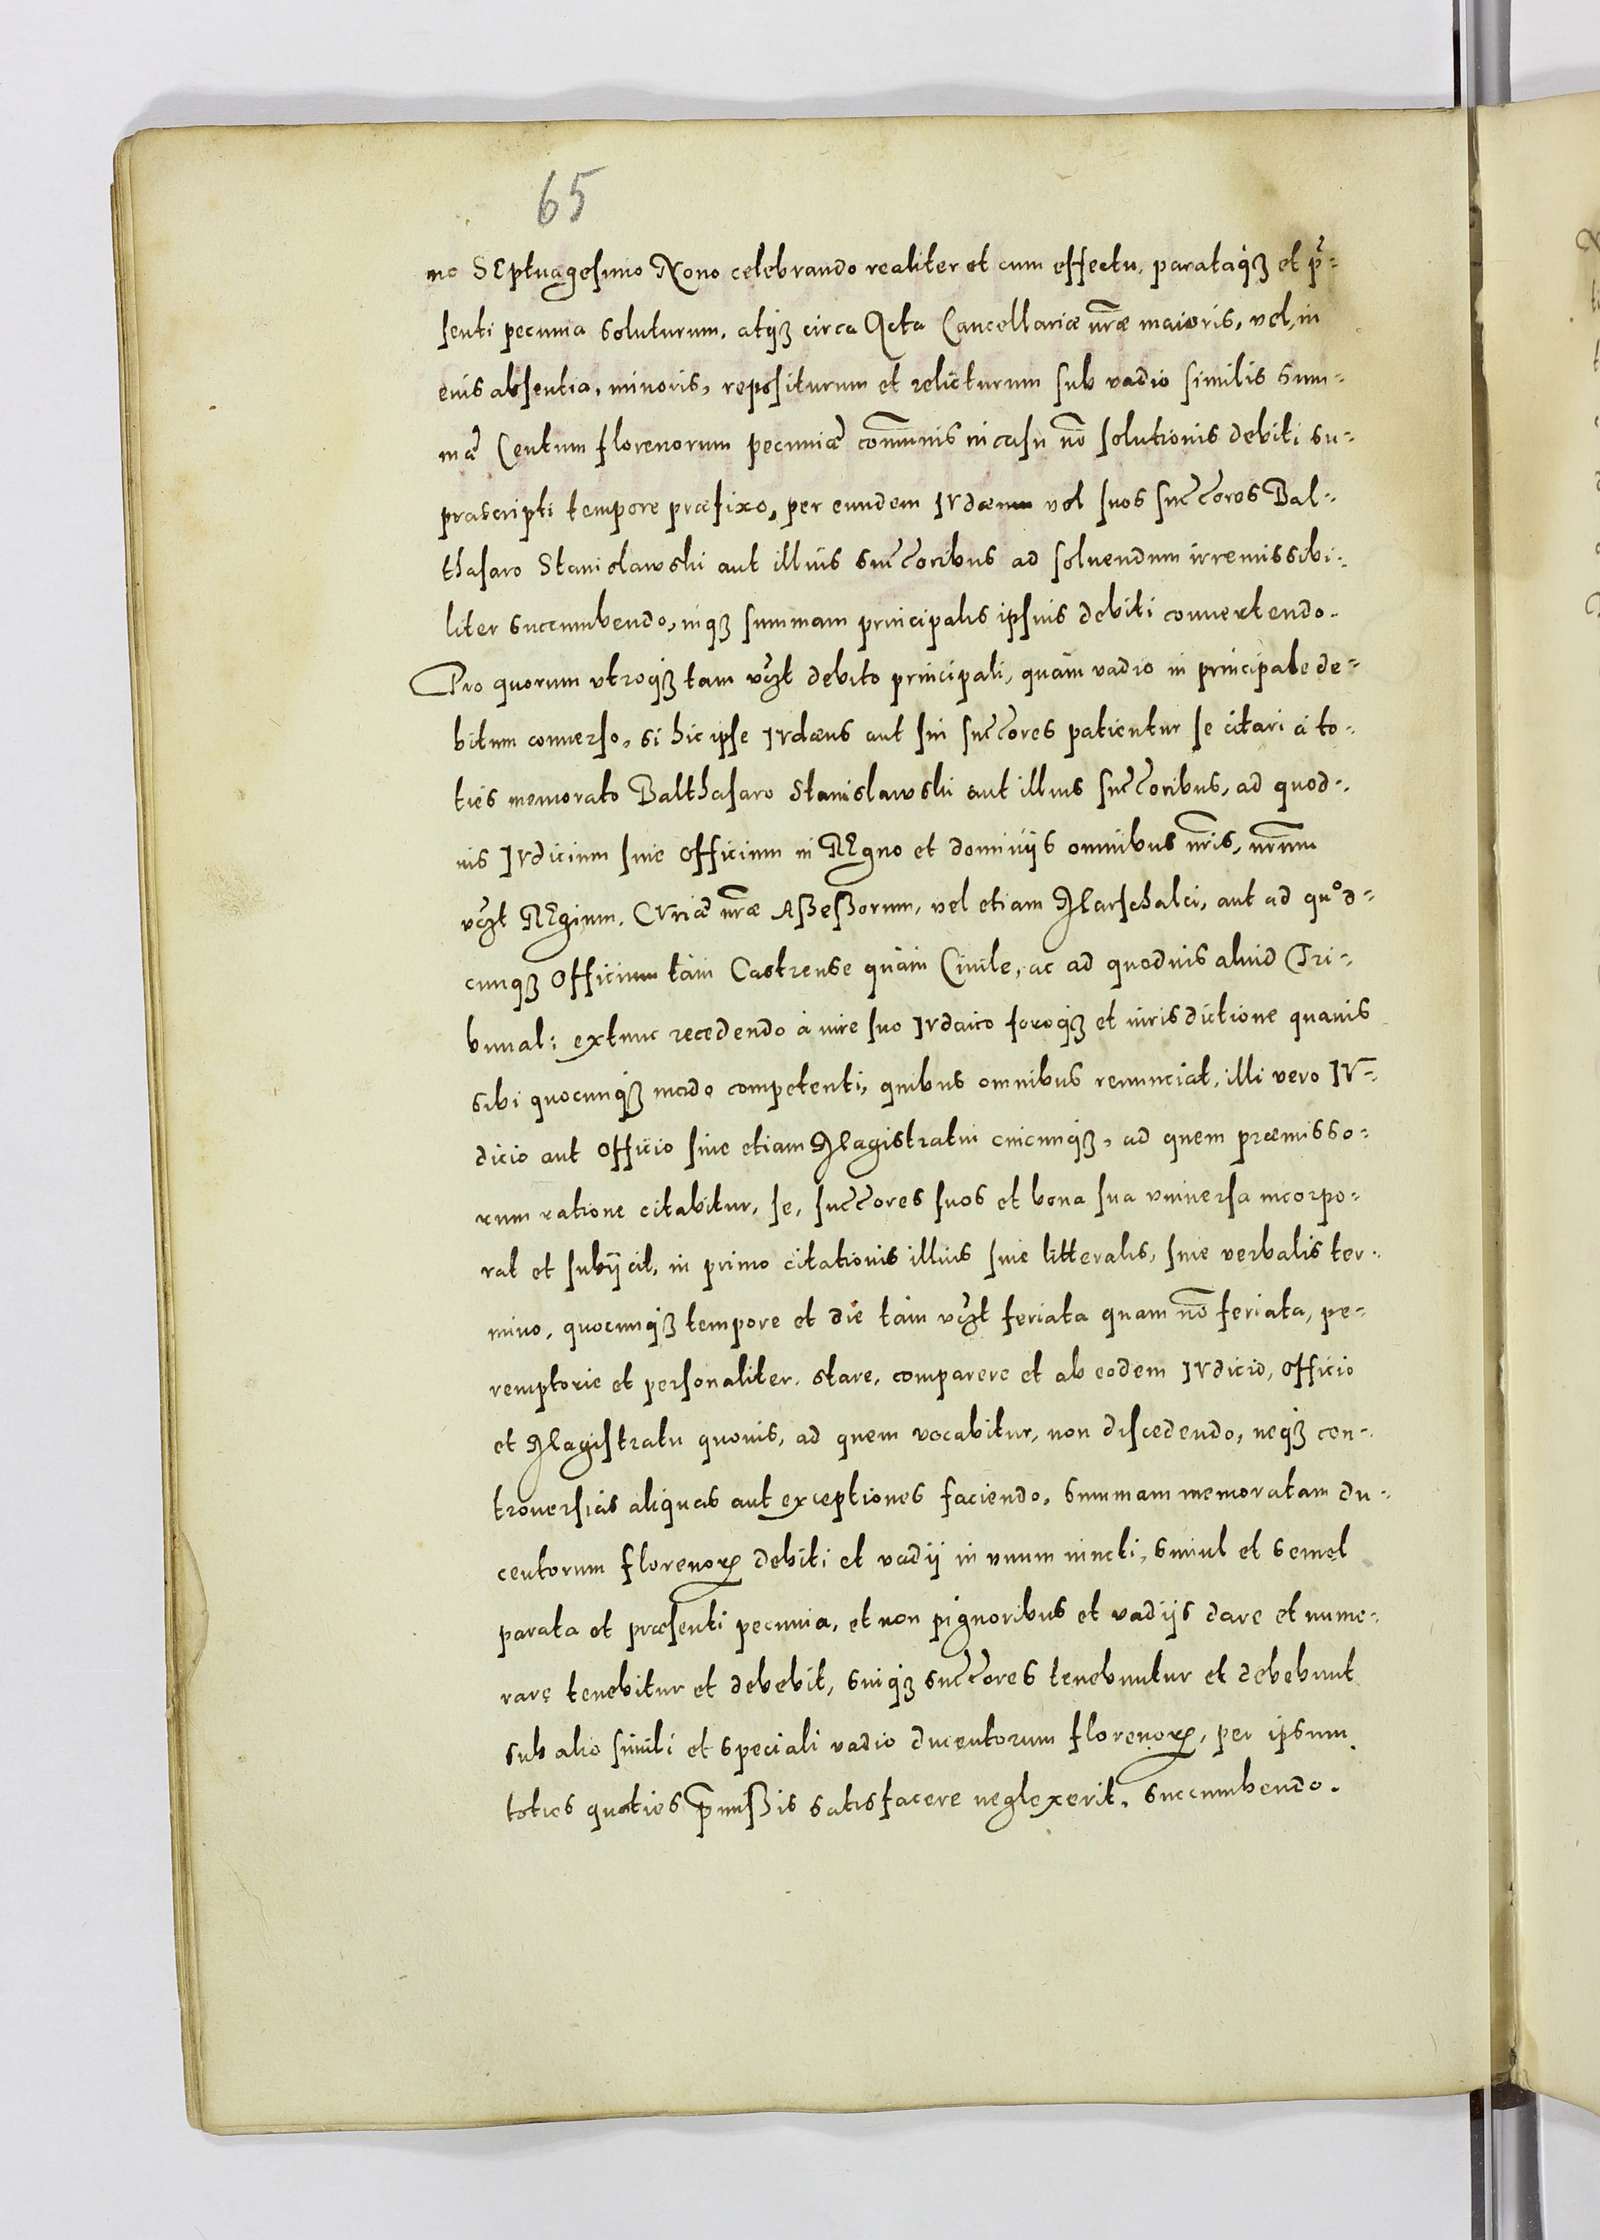 65
mo SEptuagesimo Nono celebrando realiter et cum effectu, parataq₃ et p̃-
senti pecunia soluturum, atq₃ circa Acta Cancellariæ nr̃æ maioris, vel, in
euis absentia, minoris, repositurum et relicturum sub vadio similis sum-
mæ Centum florenorum pecuniæ com̃unis in casu nõ solutionis debiti su-
prascripti tempore præfixo, per eundem IVdæum vel suos succ̃cores Bal-
thasaro Stanislawski aut illius succ̃coribus ad soluendum irremissibi-
liter succumbendo, inq₃ summam principalis ipsius debiti conuertendo.
Pro quorum vtroq₃ tam vcz̃t debito principali, quàm vadio in principale de-
bitum conuerso, si hic ipse IVdæus aut sui succ̃cores patientur se citari à to-
ties memorato Balthasaro Stanislawski aut illius succ̃coribus, ad quod-
uis IVdicium siue Officium in REgno et dominijs omnibus nr̃is, nr̃um
vcz̃t REgium, CVriæ nr̃æ Aßeßorum, vel etiam Marschalci, aut ad quod-
cunq₃ Officium tàm Castrense quàm Ciuile, ac ad quoduis aliud Tri-
bunal: extunc recedendo à iure suo IVdaico foroq₃ et iurisdictione quauis
sibi quocunq₃ modo competenti, quibus omnibus renunciat, illi vero IV-
dicio aut Officio siue etiam Magistratui cuicunq₃, ad quem præmisso-
rum ratione citabitur, se, succ̃cores suos et bona sua vniuersa incorpo-
rat et subijcit, in primo citationis illius siue litteralis, siue verbalis ter-
mino, quocunq₃ tempore et die tàm vcz̃t feriata quam nõ feriata, pe-
remptorie et personaliter, stare, comparere et ab eodem IVdicio, Officio
et Magistratu quouis, ad quem vocabitur, non discedendo, neq₃ con-
trouersias aliquas aut exceptiones faciendo, summam memoratam du-
centorum florenoꝝ debiti et vadij in vnum iuncti, simul et semel
parata et præsenti pecunia, et non pignoribus et vadijs dare et nume-
rare tenebitur et debebit, suiq₃ succ̃cores tenebuntur et debebunt
sub alio simili et speciali vadio ducentorum florenoꝝ, per ipsum,
toties quoties p̃mißis satisfacere neglexerit, succumbendo.